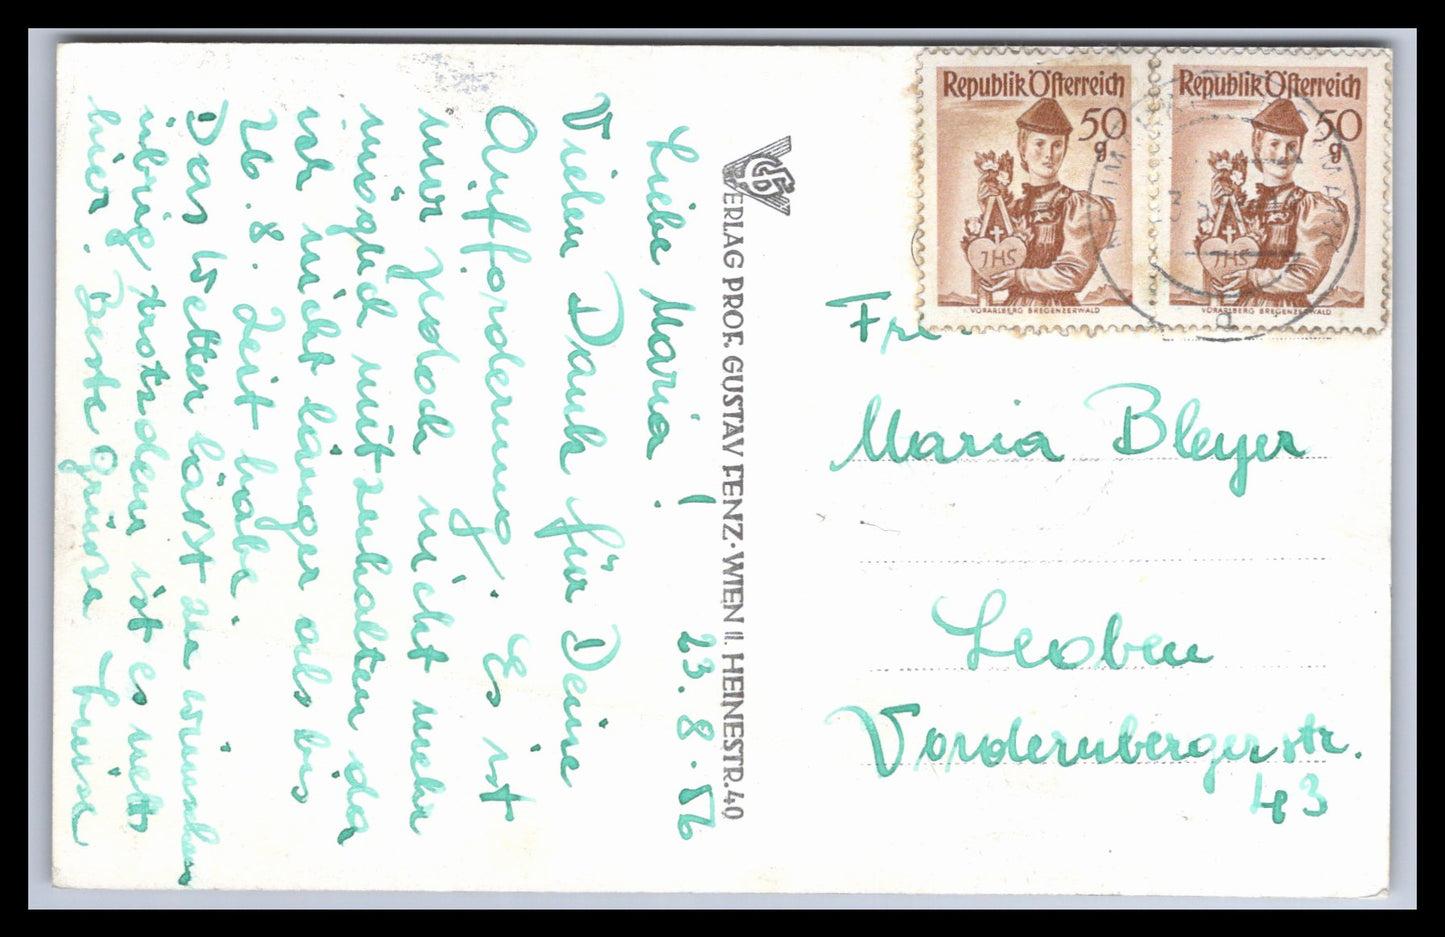 23. 8. 56
Liebe Maria !
Vielen Dank für Deine
Aufforderung. Es ist
mir jedoch nicht mehr
möglich mitzuhalten da
ich nicht länger als bis
26. 8. Zeit habe.
Das Wetter lässt zu wünschen
übrig trotzdem ist es nett
hier. Beste Grüsse
VERLAG PROF. GUSTAV FENZ · WIEN II. HEINESTR. 40
Republik Österreich
50 g
JHS
VORARLBERG BREGENZERWALD
Republik Österreich
50 g
JHS
VORARLBERG BREGENZERWALD
Maria Bleyer
Leoben
Vordernbergerstr.
43